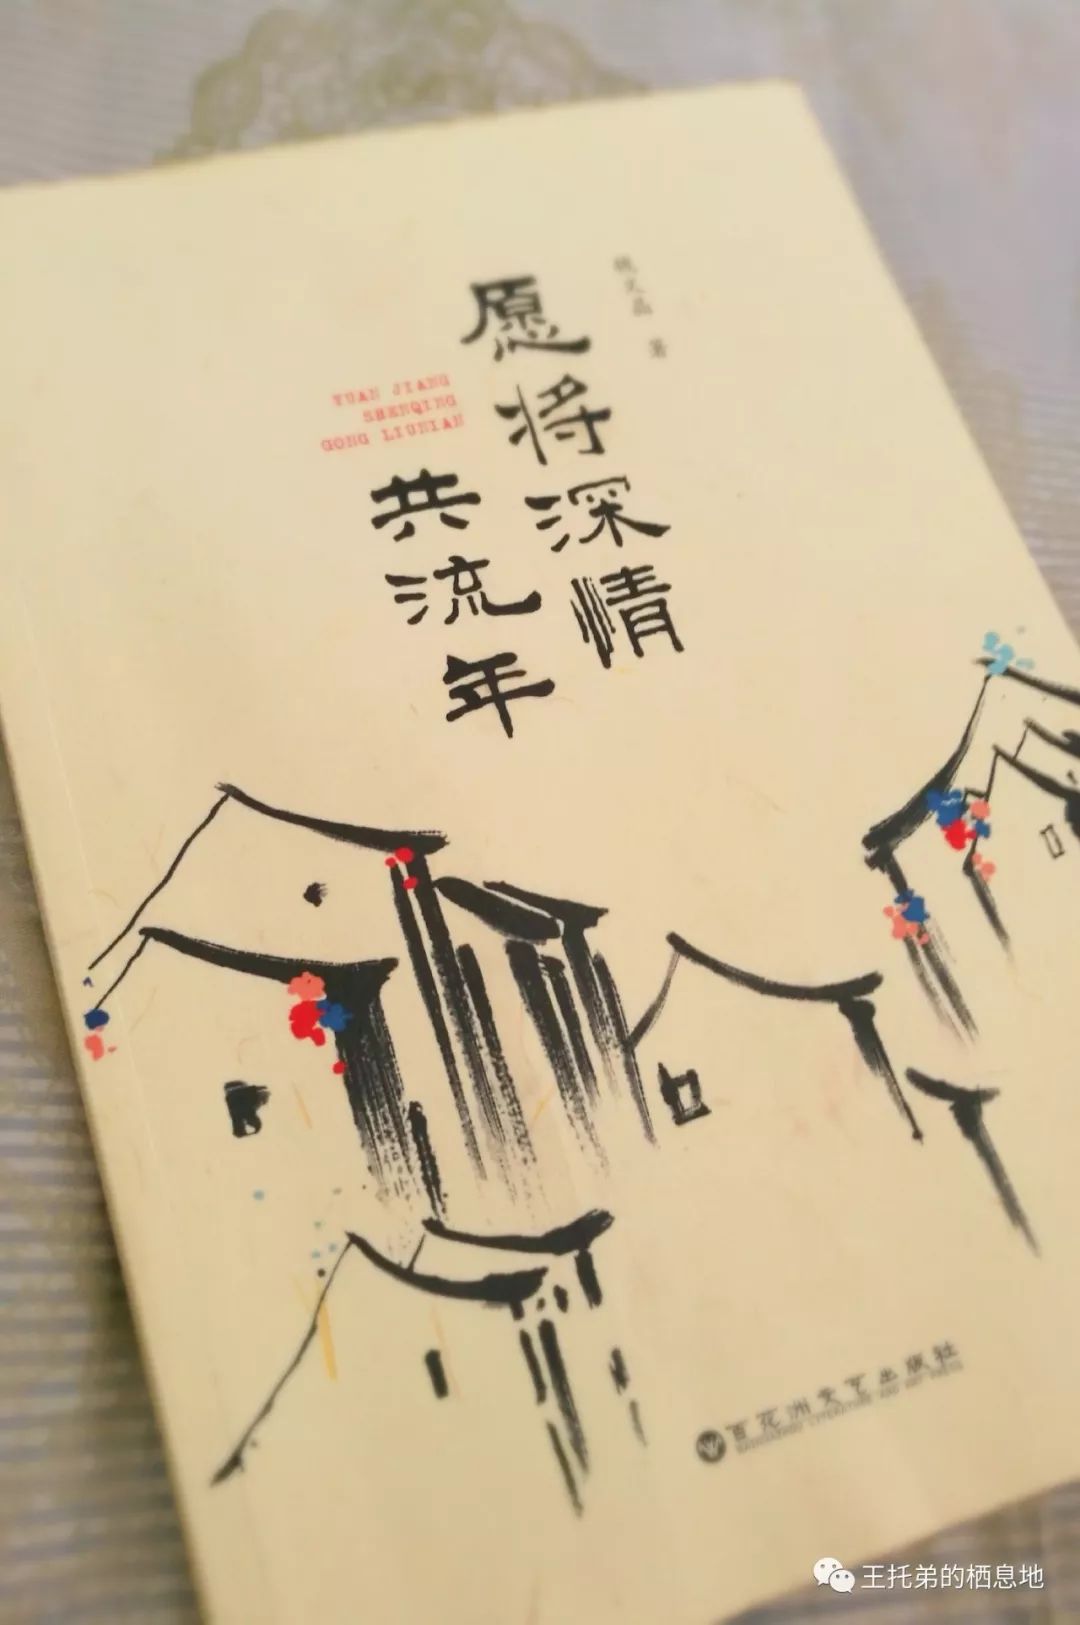 愿将深情
共流年
YUAN JIANG
SHENQING
GONG LIUNIAN
著
百花洲文艺出版社
BAIHUAZHOU LITERATURE AND ART PRESS
王托弟的栖息地